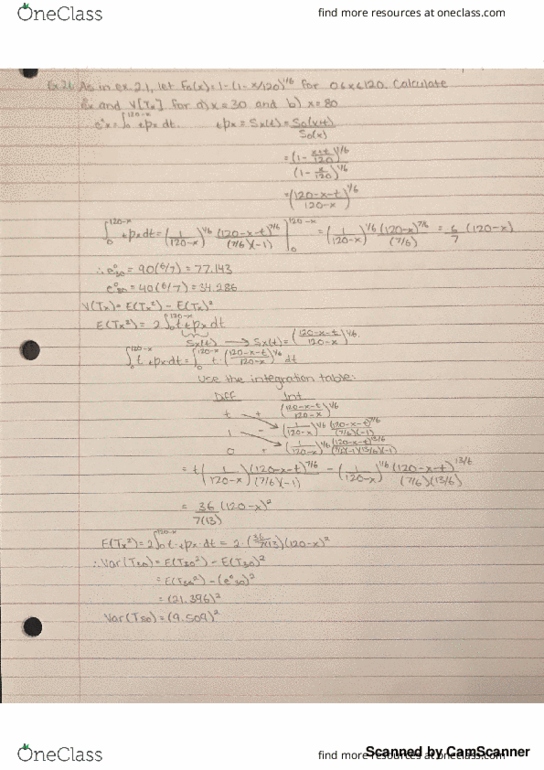 OneClass
find more resources at oneclass.com
Ex 2.6 As in ex 2.1, let F₀(x)=1-(1-x/120)^1/6 for 0≤x≤120. Calculate
e̊x and V[Tx] for a) x=30 and b) x=80
e̊x = ∫₀^120-x tpx dt. tpx = Sx(t) = S₀(x+t)/S₀(x)
= (1-(x+t)/120)^1/6 / (1-x/120)^1/6
= ((120-x-t)/(120-x))^1/6
∫₀^120-x tpx dt = (1/(120-x))^1/6 (120-x-t)^7/6/((7/6)(-1)) |₀^120-x = (1/(120-x))^1/6 (120-x)^7/6/(7/6) = 6/7 (120-x)
∴ e̊30 = 90(6/7) = 77.143
e̊80 = 40(6/7) = 34.286
V(Tx) = E(Tx²) - E(Tx)²
E(Tx²) = 2∫₀^120-x t tpx dt
Sx(t) → Sx(t) = ((120-x-t)/(120-x))^1/6
∫₀^120-x t tpx dt = ∫₀^120-x t·((120-x-t)/(120-x))^1/6 dt
Use the integration table:
Diff Int
t + ((120-x-t)/(120-x))^1/6
1 - (1/(120-x))^1/6 (120-x-t)^7/6/((7/6)(-1))
0 + (1/(120-x))^1/6 (120-x-t)^13/6
= t(1/(120-x))(120-x-t)^7/6/((7/6)(-1)) - (1/(120-x))^1/6 (120-x-t)^13/6/((7/6)(13/6))
= 36/7(13) (120-x)²
E(Tx²) = 2∫₀^120-x t·tpx·dt = 2·(36/7(13))(120-x)²
∴ Var(T30) = E(T30²) - E(T30)²
= E(T30²) - (e̊30)²
= (21.396)²
Var(T80) = (9.509)²
OneClass
find more resources at oneclass.com
Scanned by CamScanner